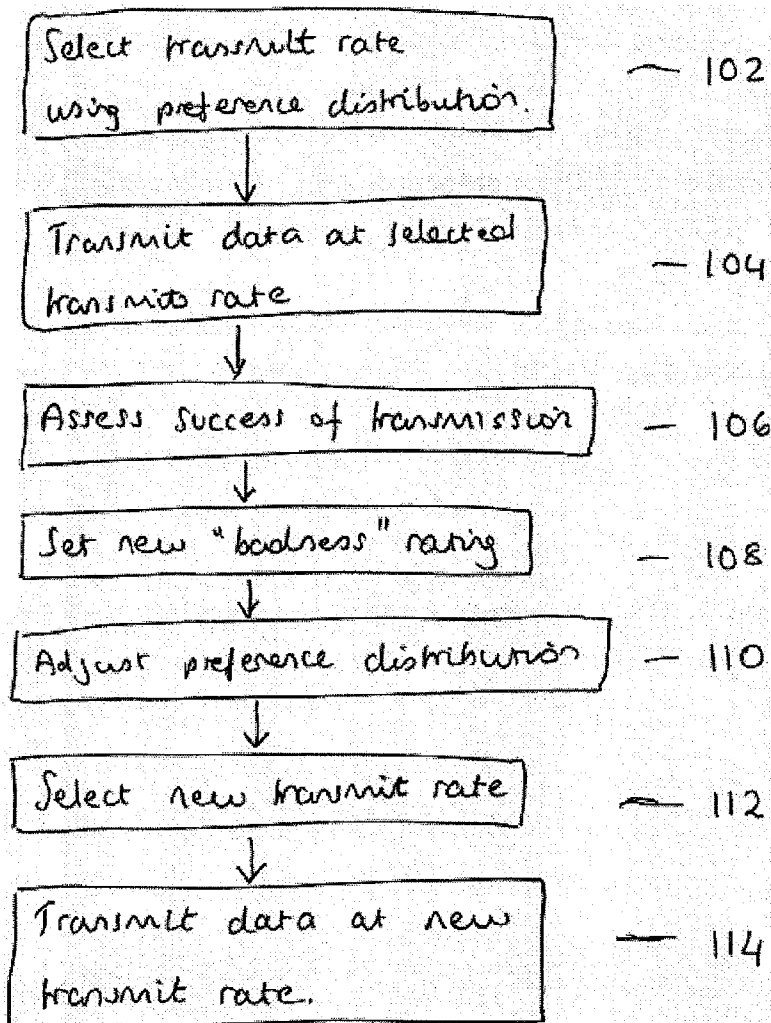 Select transmit rate
— 102
using preference distribution.
Transmit data at selected
— 104
transmit rate
Assess success of transmission — 106
Set new "badness" rating — 108
Adjust preference distribution — 110
Select new transmit rate — 112
Transmit data at new
— 114
transmit rate.